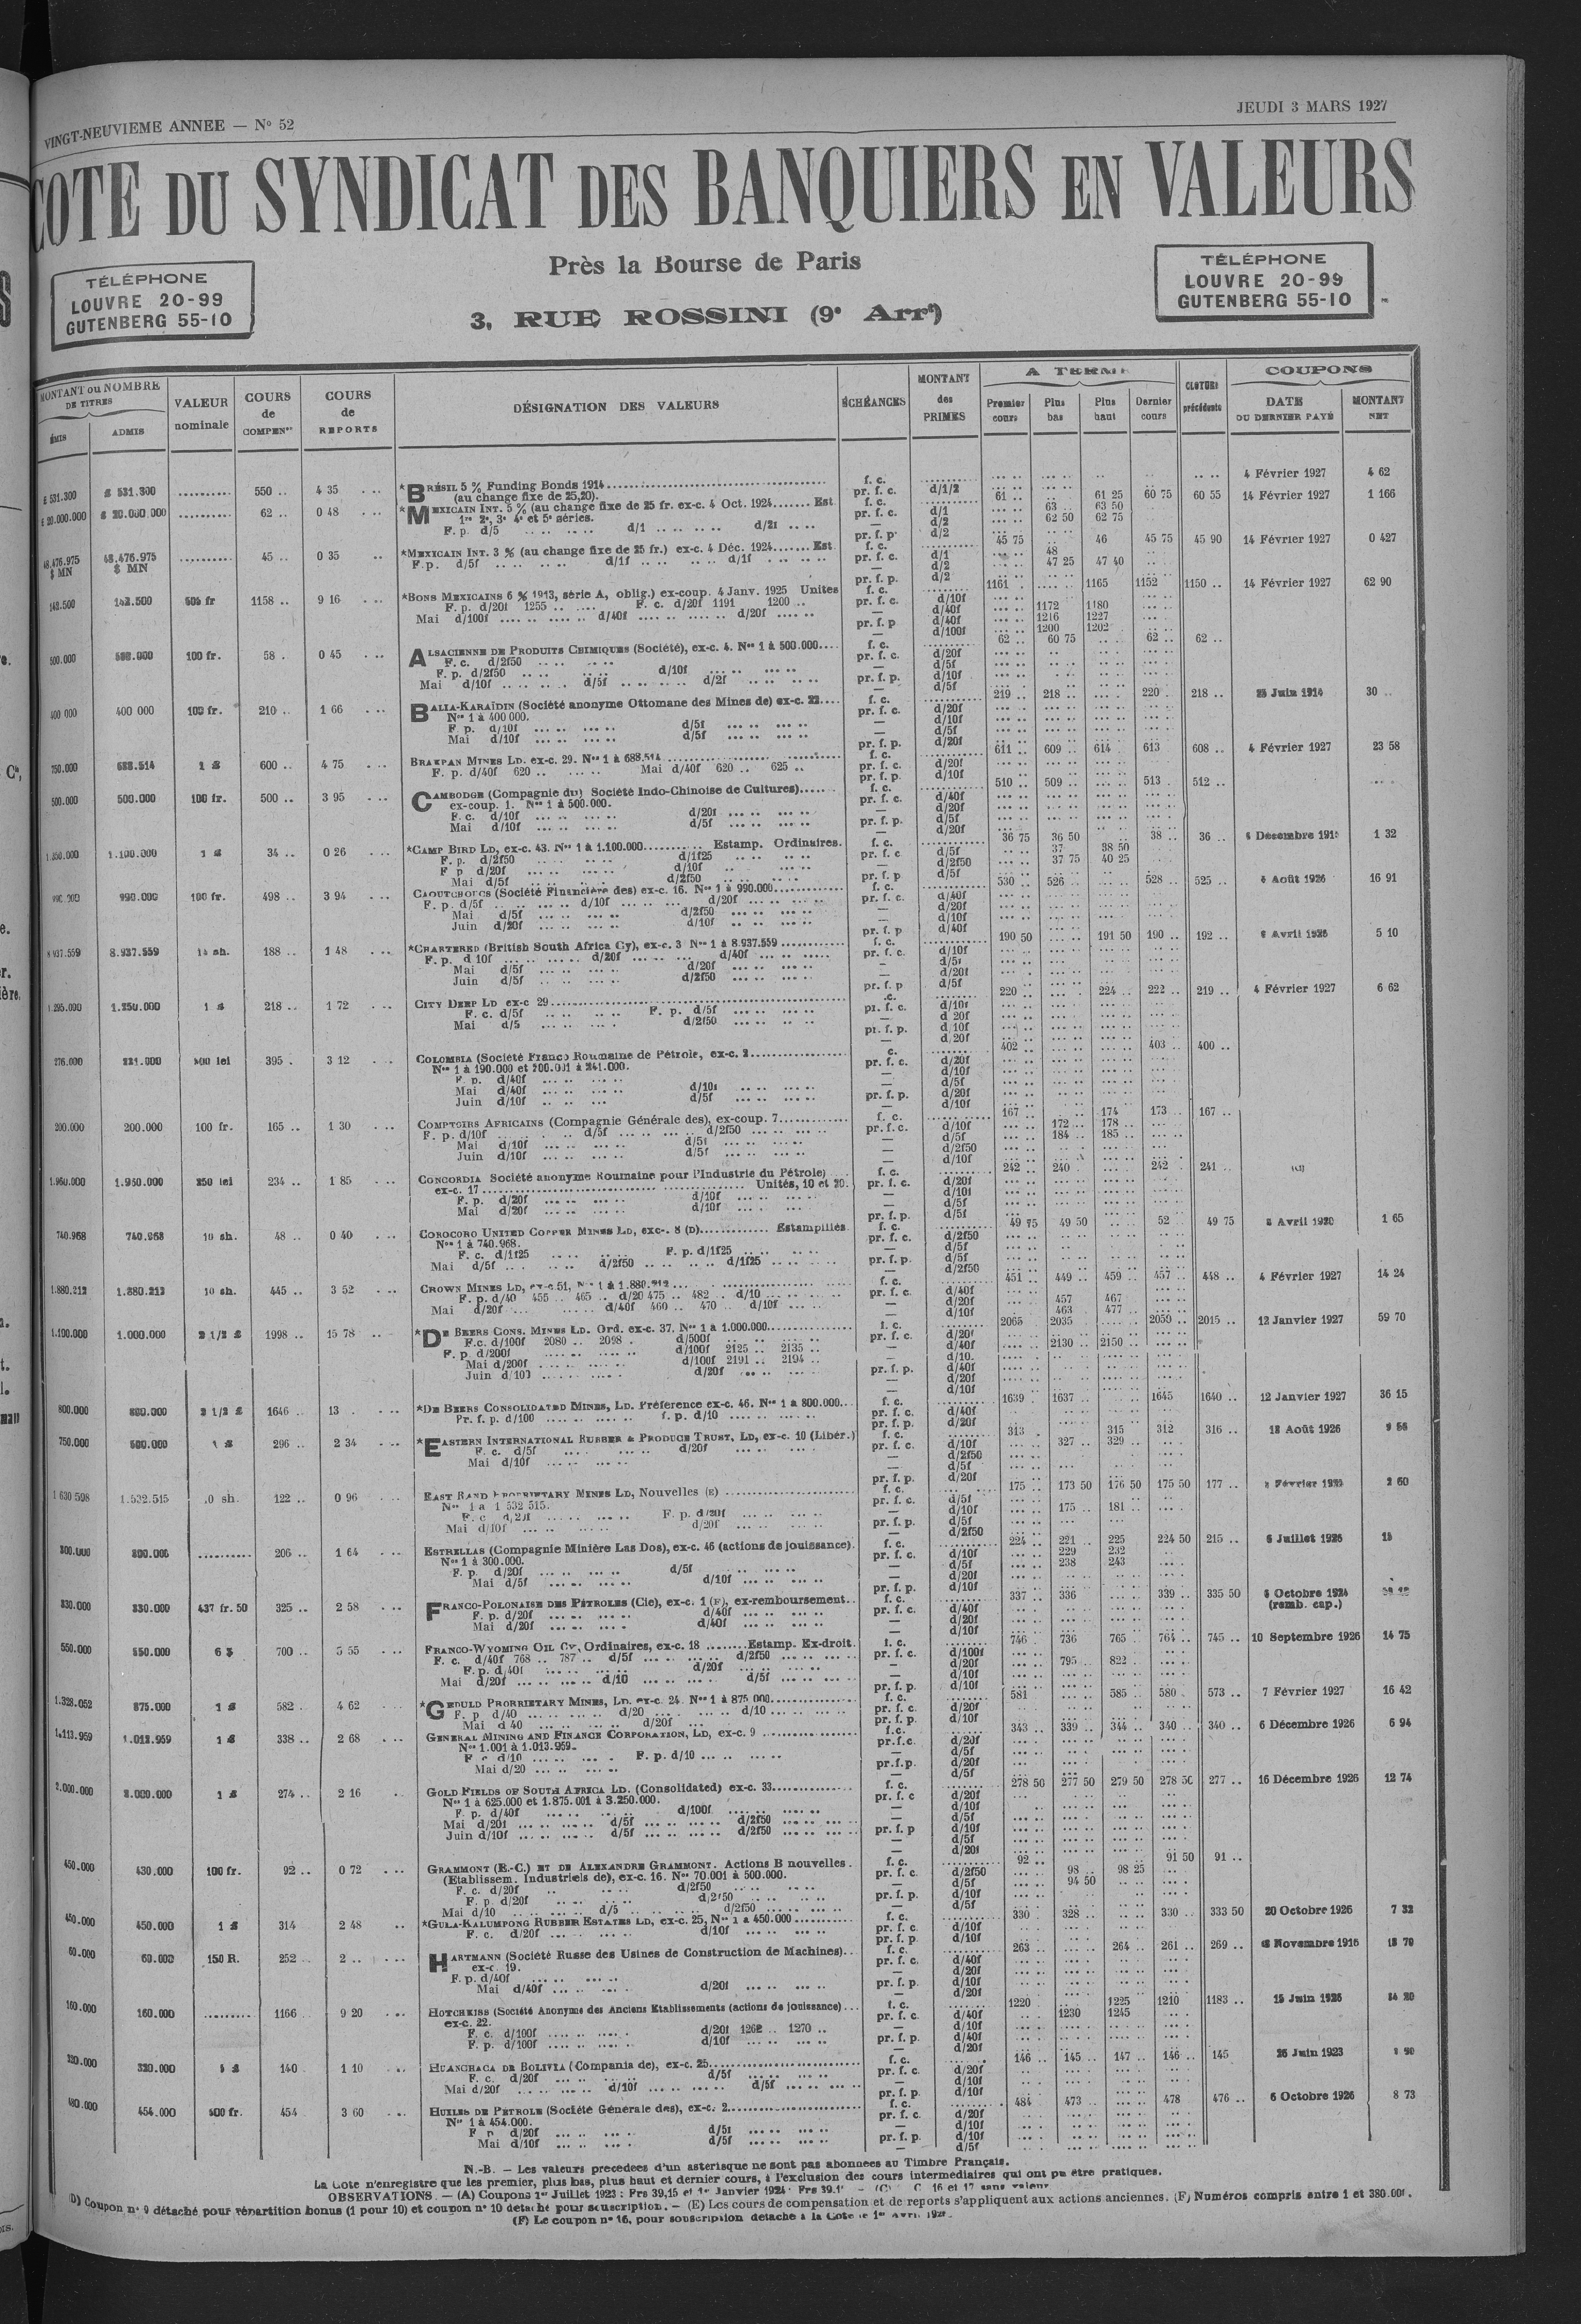 VINGT-NEUVIEME ANNEE — No 52
JEUDI 3 MARS 1927
COTE DU SYNDICAT DES BANQUIERS EN VALEURS
Près la Bourse de Paris
3, RUE ROSSINI (9e Arrt)
TÉLÉPHONE
LOUVRE 20-99
GUTENBERG 55-10
TÉLÉPHONE
LOUVRE 20-99
GUTENBERG 55-10
MONTANT ou NOMBRE DE TITRES
ÉMIS
ADMIS
VALEUR nominale
COURS de COMPENon
COURS de REPORTS
DÉSIGNATION DES VALEURS
ÉCHÉANCES
MONTANT des PRIMES
A TERME
Premier cours
Plus bas
Plus haut
Dernier cours
CLOTURE précédente
COUPONS
DATE DU DERNIER PAYÉ
MONTANT NET
£ 531.300 £ 531.300 .......... 550 .. 4 35 *BRÉSIL 5 % Funding Bonds 1914 f. c. 4 Février 1927 4 62
(au change fixe de 25,20). pr. f. c. d/1/2
£ 20.000.000 £ 20.000.000 .......... 62 .. 0 48 *MEXICAIN INT. 5 % (au change fixe de 25 fr. ex-c. 4 Oct. 1924 Est f. c. 61 .. 61 25 60 75 60 55 14 Février 1927 1 166
1re 2e, 3e 4e et 5e séries. pr. f. c. d/1 63 .. 63 50
F. p. d/5 d/1 d/21 — d/2 62 50 62 75
pr. f. p. d/2
48.476.975 $ MN 48.476.975 $ MN .......... 45 .. 0 35 *MEXICAIN INT. 3 % (au change fixe de 25 fr.) ex-c. 4 Déc. 1924 Est f. c. 45 75 46 45 75 45 90 14 Février 1927 0 427
F.p. d/5f d/1f d/1f pr. f. c. d/1 48
— d/2 47 25 47 40
pr. f. p. d/2
142.500 142.500 504 fr 1158 .. 9 16 *BONS MEXICAINS 6 % 1913, série A, oblig.) ex-coup. 4 Janv. 1925 Unites f. c. 1161 1165 1152 1150 .. 14 Février 1927 62 90
F. p. d/20f 1255 F. c. d/20f 1191 1200 pr. f. c. d/10f
Mai d/100f d/40f d/20f — d/40f 1172 1180
pr. f. p d/40f 1216 1227
— d/100f 1200 1202
500.000 500.000 100 fr. 58 . 0 45 ALSACIENNE DE PRODUITS CHIMIQUES (Société), ex-c. 4. Nos 1 à 500.000 f. c. 62 .. 60 75 62 .. 62 ..
F. c. d/2f50 pr. f. c. d/20f
F. p. d/2f50 d/10f — d/5f
Mai d/10f d/5f d/2f pr. f. p. d/10f
— d/5f
400 000 400 000 100 fr. 210 .. 1 66 BALIA-KARAÏDIN (Société anonyme Ottomane des Mines de) ex-c. 22 f. c. 219 .. 218 .. 220 218 .. 25 Juin 1914 30 ..
Nos 1 à 400 000. pr. f. c. d/20f
F. p. d/10f d/5f — d/10f
Mai d/10f d/5f — d/5f
pr. f. p. d/20f
750.000 688.514 1 £ 600 .. 4 75 BRAKPAN MINES LD. ex-c. 29. Nos 1 à 688.514 f. c. 611 .. 609 .. 614 613 608 .. 4 Février 1927 23 58
F. p. d/40f 620 .. Mai d/40f 620 .. 625 .. pr. f. c. d/20f
pr. f. p. d/10f
500.000 500.000 100 fr. 500 .. 3 95 CAMBODGE (Compagnie du) Société Indo-Chinoise de Cultures) f. c. 510 .. 509 .. 513 512 ..
ex-coup. 1. Nos 1 à 500.000. pr. f. c. d/40f
F. c. d/10f d/20f — d/20f
Mai d/10f d/5f pr. f. p. d/5f
— d/20f
1.350.000 1.100.000 1 £ 34 .. 0 26 *CAMP BIRD LD, ex-c. 43. Nos 1 à 1.100.000 Estamp. Ordinaires. f. c. 36 75 36 50 38 .. 36 .. 1 32
F. p. d/2f50 d/1f25 pr. f. c d/5f 37 38 50
F p d/20f d/10f — d/2f50 37 75 40 25
Mai d/5f d/2f50 pr. f. p d/5f
990.000 990.000 100 fr. 498 .. 3 94 CAOUTCHOUCS (Société Financière des) ex-c. 16. Nos 1 à 990.000 f. c. 530 .. 526 .. 528 .. 525 .. Août 1926 16 91
F. p. d/5f d/10f d/20f pr. f. c. d/40f
Mai d/5f d/2f50 — d/20f
Juin d/20f d/10f — d/10f
pr. f. p d/40f
8 937.559 8.937.559 15 sh. 188 .. 1 48 *CHARTERED (British South Africa Cy), ex-c. 3 Nos 1 à 8.937.559 f. c. 190 50 191 50 190 .. 192 .. Avril 1926 5 10
F. p. d 10f d/20f d/40f pr. f. c. d/10f
Mai d/5f d/20f — d/5f
Juin d/5f d/2f50 — d/20f
pr. f. p d/5f
1.295.000 1.250.000 1 £ 218 .. 1 72 CITY DEEP LD ex-c 29 220 .. 224 .. 222 .. 219 .. 4 Février 1927 6 62
F. c. d/5f F. p. d/5f pr. f. c. d/10f
Mai d/5 d/2f50 — d 20f
pr. f. p. d 10f
— d 20f
276.000 221.000 500 lei 395 . 3 12 COLOMBIA (Société Franco Roumaine de Pétrole, ex-c. 2 402 .. 403 .. 400 ..
Nos 1 à 190.000 et 200.001 à 241.000. pr. f. c. d/20f
F. p. d/40f — d/10f
Mai d/40f d/10f — d/5f
Juin d/10f d/5f pr. f. p. d/20f
— d/10f
200.000 200.000 100 fr. 165 .. 1 30 COMPTOIRS AFRICAINS (Compagnie Générale des), ex-coup. 7 f. c. 167 174 173 .. 167 ..
F. p. d/10f d/5f d/2f50 pr. f. c. d/10f 172 .. 178 ..
Mai d/10f d/5f — d/5f 184 .. 185 ..
Juin d/10f d/5f — d/2f50
— d/10f
1.950.000 1.950.000 250 lei 234 .. 1 85 CONCORDIA Société anonyme Roumaine pour l'Industrie du Pétrole) f. c. 242 .. 240 242 241 ..
ex-c. 17 Unités, 10 et 20. pr. f. c. d/20f
F. p. d/20f d/10f — d/10f
Mai d/20f d/10f — d/5f
pr. f. p. d/5f
740.968 740.968 10 sh. 48 .. 0 40 COROCORO UNITED COPPER MINES LD, exc-. 8 (D) Estampillés f. c. 49 75 49 50 52 49 75 Avril 1920 1 65
Nos 1 à 740.968. pr. f. c. d/2f50
F. c. d/1f25 F. p. d/1f25 — d/5f
Mai d/5f d/2f50 d/1f25 pr. f. p. d/5f
— d/2f50
1.880.212 1.880.212 10 sh. 445 .. 3 52 CROWN MINES LD, ex-c 51, Nos 1 à 1.880.212 f. c. 451 449 .. 459 .. 457 448 .. 4 Février 1927 14 24
F. p. d/40 455 .. 465 .. d/20 475 .. 482 d/10 pr. f. c. d/40f
Mai d/20f d/40f 460 .. 470 .. d/10f — d/20f 457 467
— d/10f 463 477
1.100.000 1.000.000 2 1/2 £ 1998 .. 15 78 *DE BEERS CONS. MINES LD. Ord. ex-c. 37. Nos 1 à 1.000.000 f. c. 2065 2035 2050 .. 2015 .. 12 Janvier 1927 59 70
F.c. d/100f 2080 .. 2098 . d/500f pr. f. c. d/20f
F. p. d/200f d/100f 2125 .. 2135 .. — d/40f 2130 2150
Mai d/200f d/100f 2191 .. 2194 .. — d/10.
Juin d/100 d/20f pr. f. p. d/40f
— d/20f
— d/10f
800.000 800.000 2 1/2 £ 1646 .. 13 *DE BEERS CONSOLIDATED MINES, LD. Préférence ex-c. 46. Nos 1 à 800.000 f. c. 1639 1637 1645 1640 .. 12 Janvier 1927 36 15
Pr. f. p. d/100 f. p. d/10 pr. f. c. d/40f
pr. f. p. d/20f
750.000 500.000 1 £ 296 .. 2 34 *EASTERN INTERNATIONAL RUBBER & PRODUCE TRUST, LD, ex-c. 10 (Libér.) f. c. 313 315 312 316 .. 18 Août 1926
F. c. d/5f d/20f pr. f. c. d/10f 327 .. 329 ..
Mai d/10f — d/2f50
— d/5f
pr. f. p. d/20f
1 630 598 1.532.515 10 sh. 122 .. 0 96 EAST RAND PROPRIETARY MINES LD, Nouvelles (E) f. c. 175 173 50 176 50 175 50 177 .. 2 60
Nos 1 a 1 532 515. pr. f. c. d/5f
F. c d/20f F. p. d/20f — d/10f 175 .. 181 ..
Mai d/10f d/20f pr. f. p. d/5f
— d/2f50
300.000 300.000 .......... 206 .. 1 64 ESTRELLAS (Compagnie Minière Las Dos), ex-c. 46 (actions de jouissance). f. c. 224 .. 221 .. 225 224 50 215 .. 6 Juillet 1926 15
Nos 1 à 300.000. pr. f. c. d/10f 229 232
F. p. d/20f d/5f — d/5f 238 243
Mai d/5f d/10f — d/20f
pr. f. p. d/10f
330.000 330.000 437 fr. 50 325 .. 2 58 FRANCO-POLONAISE DES PÉTROLES (Cie), ex-c. 1 (F), ex-remboursement f. c. 337 336 339 .. 335 50 Octobre 1924
F. p. d/20f d/40f pr. f. c. d/40f (remb. cap.)
Mai d/20f d/40f — d/20f
— d/10f
550.000 550.000 6 $ 700 .. 5 55 FRANCO-WYOMING OIL Cy, Ordinaires, ex-c. 18 Estamp. Ex-droit. f. c. 746 736 765 764 .. 745 .. 10 Septembre 1926 14 75
F. c. d/40f 768 .. 787 .. d/5f d/2f50 pr. f. c. d/100f
F. p. d/40f d/20f — d/20f 795 822
Mai d/20f d/10 d/5f — d/10f
pr. f. p. d/10f
1.328.052 875.000 1 £ 582 . 4 62 *GEDULD PRORRIETARY MINES, LD. ex-c. 24. Nos 1 à 875 000 f. c. 581 585 .. 580 573 .. 7 Février 1927 16 42
F. p d/40 d/20 d/10 pr. f. c. d/20f
Mai d 40 d/20f pr. f. p. d/10f
1.113.959 1.013.959 1 £ 338 .. 2 68 GENERAL MINING AND FINANCE CORPORATION, LD, ex-c. 9 f. c. 343 .. 339 .. 344 .. 340 .. 340 .. 6 Décembre 1926 6 94
Nos 1.001 à 1.013.959. pr.f.c. d/20f
F c d/10 F. p. d/10 — d/5f
Mai d/20 pr.f.p. d/20f
— d/5f
2.000.000 2.000.000 1 £ 274 .. 2 16 GOLD FIELDS OF SOUTH AFRICA LD. (Consolidated) ex-c. 33 f. c. 278 50 277 50 279 50 278 50 277 .. 16 Décembre 1926 12 74
Nos 1 à 625.000 et 1.875.001 à 3.250.000. pr. f. c d/20f
F. p. d/40f d/100f — d/10f
Mai d/20f d/5f d/2f50 — d/5f
Juin d/10f d/5f d/2f50 pr. f. p d/10f
— d/5f
— d/20f
450.000 430.000 100 fr. 92 .. 0 72 GRAMMONT (E.-C.) ET DE ALEXANDRE GRAMMONT. Actions B nouvelles. f. c. 92 .. 91 50 91 ..
(Etablissem. Industriels de), ex-c. 16. Nos 70.001 à 500.000. pr. f. c. d/2f50 98 98 25
F. c. d/20f d/2f50 — d/5f 94 50
F. p. d/20f d/2f50 pr. f. p. d/10f
Mai d/10 d/5 d/2f50 — d/5f
450.000 450.000 1 £ 314 2 48 *GULA-KALUMPONG RUBBER ESTATES LD, ex-c. 25, Nos 1 à 450.000 f. c. 330 328 .. 330 .. 333 50 20 Octobre 1926 7 32
F. c. d/20f d/10f pr. f. c. d/10f
pr. f. p. d/10f
60.000 60.000 150 R. 252 2 .. HARTMANN (Société Russe des Usines de Construction de Machines) f. c. 263 .. 264 .. 261 .. 269 .. Novembre 1915 18 70
ex-c. 19. pr. f. c. d/40f
F. p. d/40f — d/20f
Mai d/40f d/20f pr. f. p. d/10f
— d/20f
160.000 160.000 ......... 1166 9 20 HOTCHKISS (Société Anonyme des Anciens Etablissements (actions de jouissance) f. c. 1220 1225 1210 1183 .. 15 Juin 1926
ex-c. 22. pr. f. c. d/40f 1230 1245
F. c. d/100f d/20f 1262 .. 1270 .. — d/10f
F. p. d/100f d/10f pr. f. p. d/40f
— d/20f
320.000 320.000 5 £ 140 1 10 HUANCHACA DE BOLIVIA (Compania de), ex-c. 25 f. c. 146 .. 145 147 .. 146 145 26 Juin 1923
F. c. d/20f d/5f pr. f. c. d/20f
Mai d/20f d/10f d/5f — d/10f
pr. f. p. d/10f
480.000 454.000 500 fr. 454 3 60 HUILES DE PÉTROLE (Société Générale des), ex-c. 2 f. c. 484 473 478 476 .. 6 Octobre 1926 8 73
Nos 1 à 454.000. pr. f. c. d/20f
F p d/20f d/5f — d/10f
Mai d/10f d/5f pr. f. p. d/10f
— d/5f
N.-B. — Les valeurs precedees d'un asterisque ne sont pas abonnees au Timbre Français.
La Cote n'enregistre que les premier, plus bas, plus haut et dernier cours, à l'exclusion des cours intermédiaires qui ont pu être pratiques.
OBSERVATIONS. — (A) Coupons 1er Juillet 1923 : Frs 39,15 et 1er Janvier 1924 Frs 39.1 — (C) C 16 et 17 sans valeur
(D) Coupon no 9 détaché pour répartition bonus (1 pour 10) et coupon no 10 détaché pour souscription. — (E) Les cours de compensation et de reports s'appliquent aux actions anciennes. (F) Numéros compris entre 1 et 380.001.
(F) Le coupon no 16, pour souscription detache à la Cote le 1er Avril